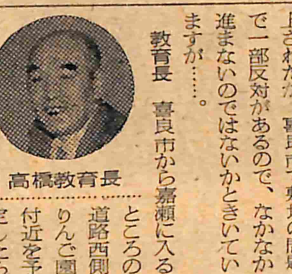 で一部反対があるので、なかなか
進まないのではないかときいてい
ますが……。
教育長　喜良市から嘉瀬に入る
ところの
道路西側
りんご園
付近を予
高橋教育長